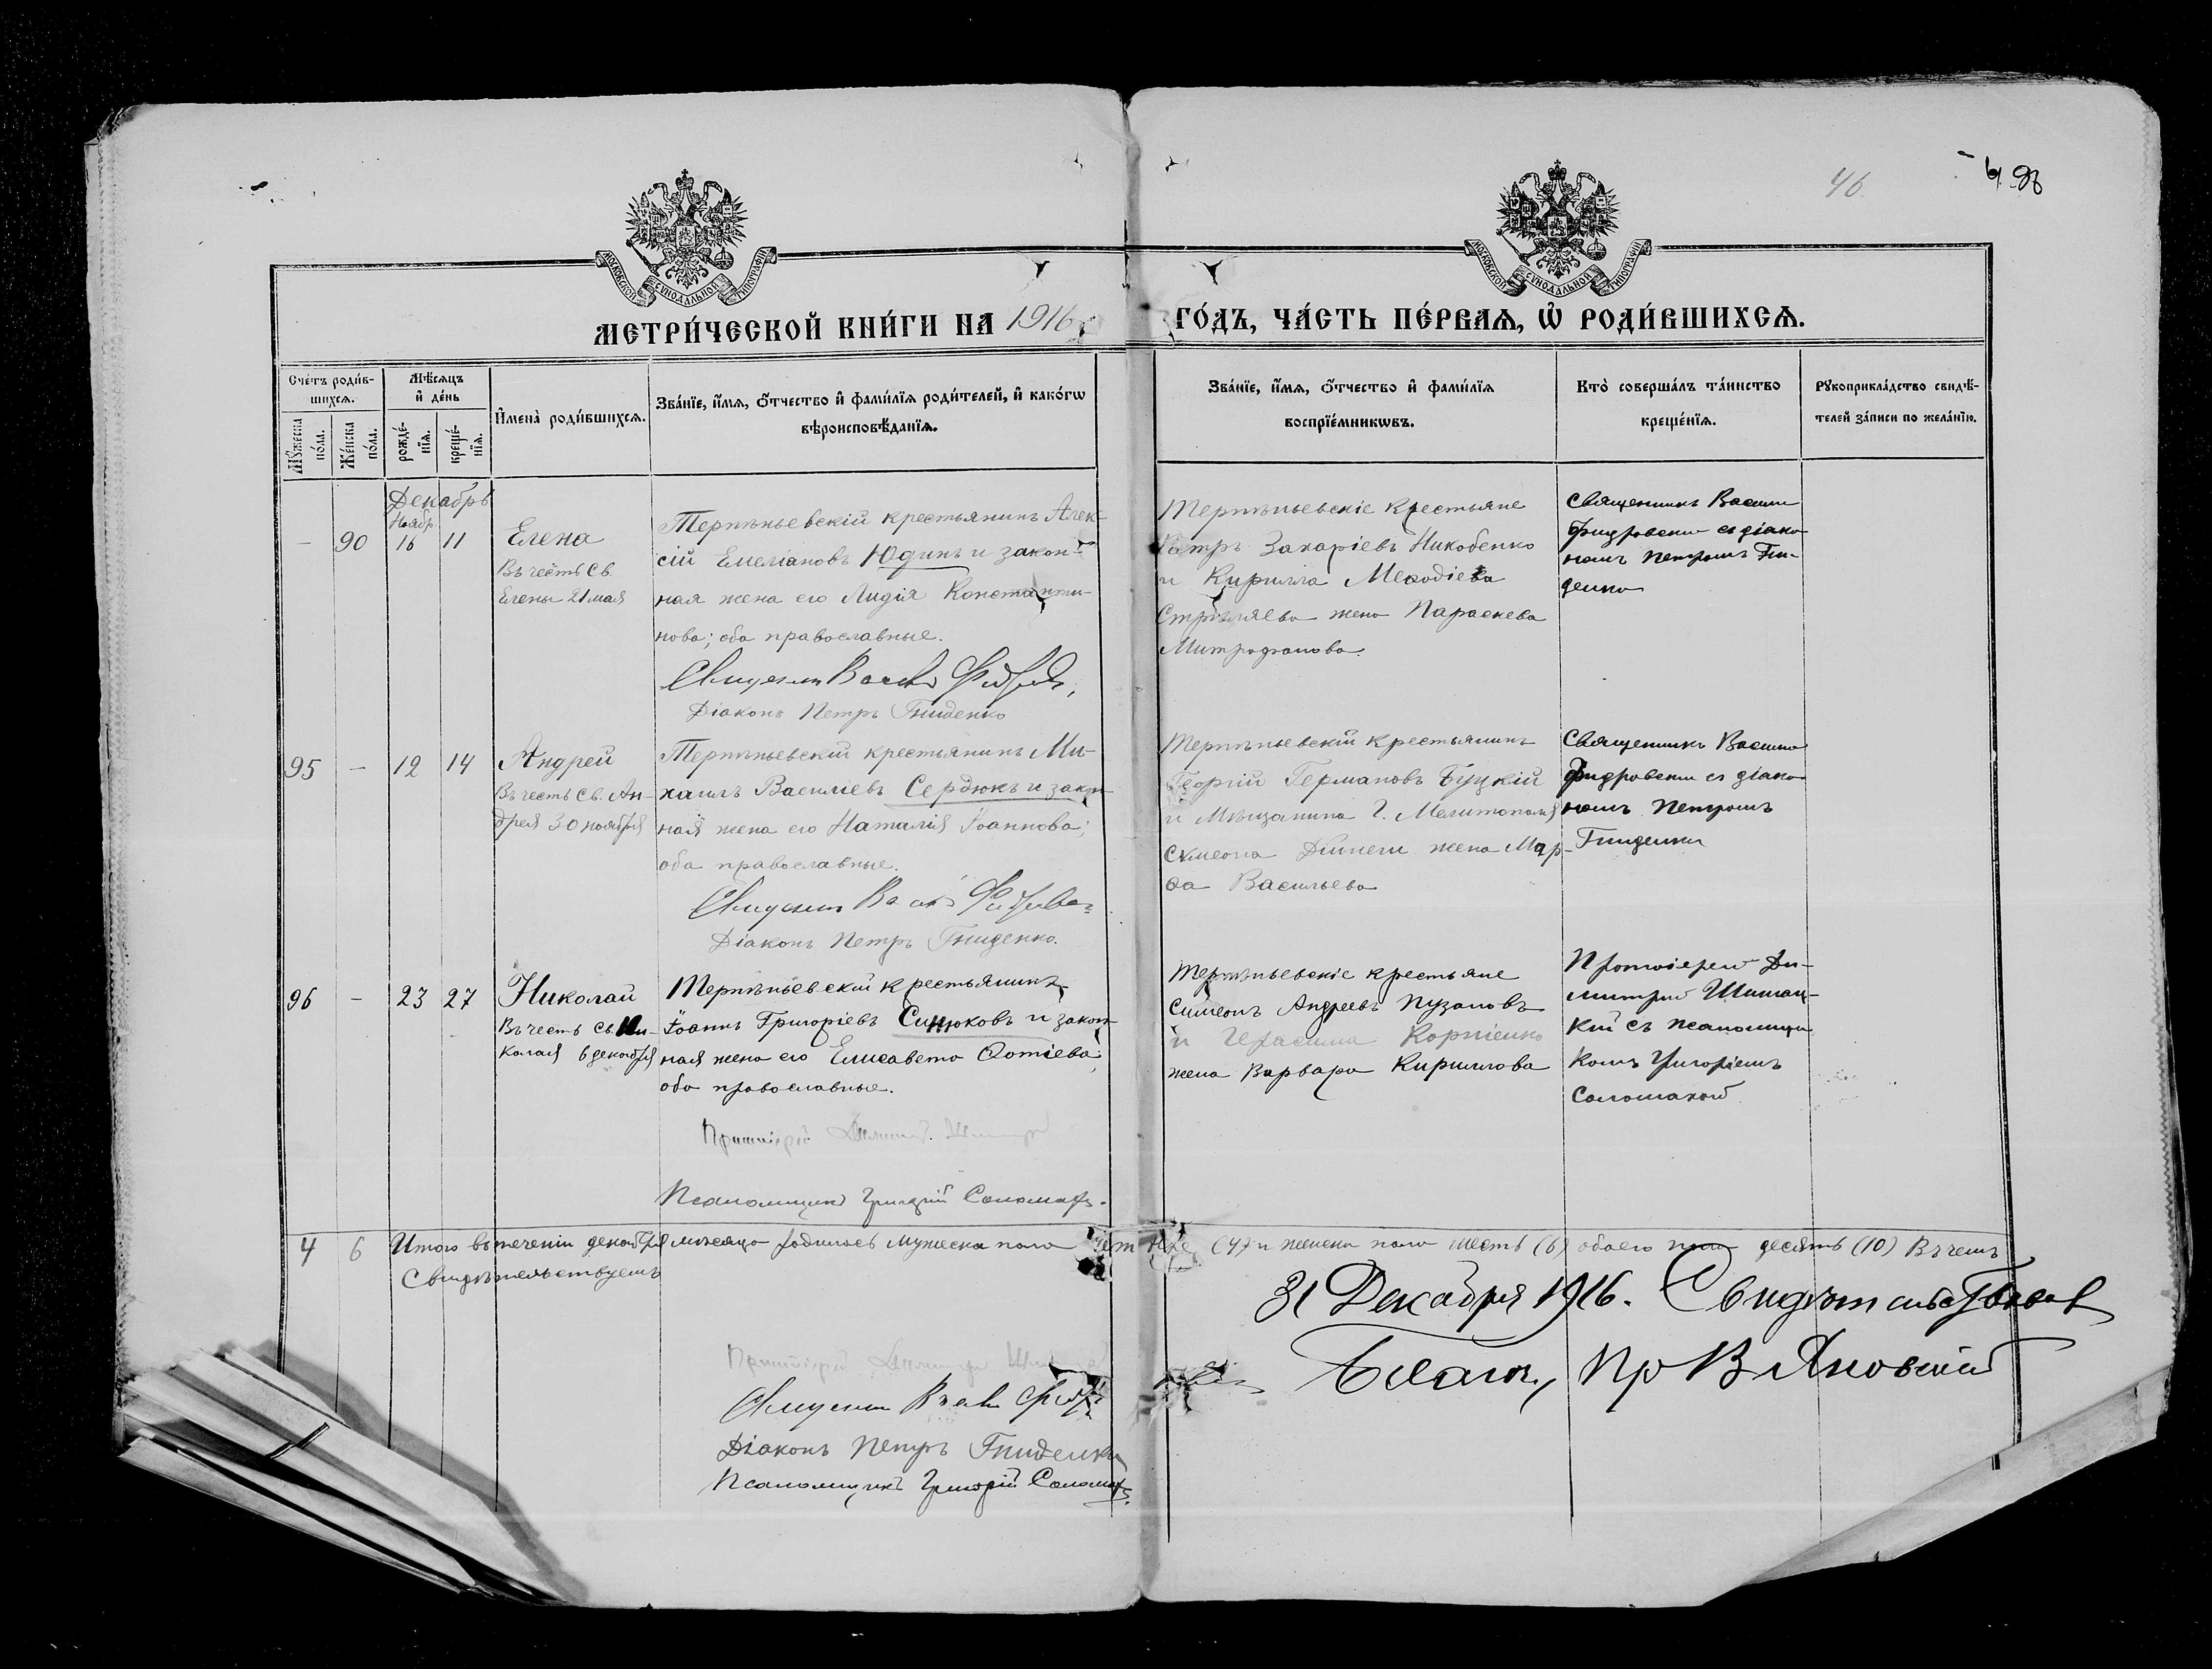 46
МОСКОВСКОЙ СѴНОДАЛЬНОЙ ТИПОГРАФІИ
МОСКОВСКОЙ СѴНОДАЛЬНОЙ ТИПОГРАФІИ
МЕТРИ́ЧЕСКОЙ КНИ́ГИ НА 1916
ГО́ДЪ, ЧА́СТЬ ПЕ́РВАѦ, Ѡ҆ РОДИ́ВШИХСѦ.
Сче́тъ роди́в-
шихсѧ.
Мѣ́сѧцъ
и҆ де́нь
Мꙋ́жеска
по́ла.
Же́нска
по́ла.
рожде́-
нїѧ.
креще́-
нїѧ.
И҆мена̀ роди́вшихсѧ.
Зва́нїе, и҆́мѧ, ѻ҆́тчество и҆ фами́лїѧ роди́телей, и҆ како́гѡ
вѣроисповѣ́данїѧ.
Зва́нїе, и҆́мѧ, ѻ҆́тчество и҆ фами́лїѧ
воспрїе́мникѡвъ.
Кто̀ соверша́лъ та́инство
креще́нїѧ.
Рꙋкоприкла́дство свидѣ́-
телей за́писи по жела́нїю.
Декабрь
Ноябр
– 90 16 11
Елена
Въ честь Св.
Елены 21 мая
Терпѣньевскій крестьянинъ Алек-
сій Емеліановъ Юдинъ и закон-
ная жена его Лидія Константи-
нова; оба православные.
Діаконъ Петръ Гниденко
Терпѣньевскіе крестьяне
Петръ Захаріевъ Никобенко
и Кирилла Меѳодіева
Стрѣляева жена Параскева
Митрофанова.
Священникъ Василій
съ діако-
номъ Петромъ Гни-
денко
95 – 12 14
Андрей
Въ честь Св. Ан-
дрея 30 ноября
Терпѣньевскій крестьянинъ Ми-
хаилъ Василіевъ Сердюкъ и закон-
ная жена его Наталія Іоаннова;
оба православные.
Діаконъ Петръ Гниденко.
Терпѣньевскій крестьянинъ
Георгій Германовъ Буцкій
и Мѣщанина г. Мелитополя
Симеона жена Мар-
ѳа Васильева
Священникъ Василій
съ діако-
номъ Петромъ
Гниденко
96 – 23 27
Николай
Въ честь Св. Ни-
колая 6 декабря
Терпѣньевскій крестьянинъ
Іоаннъ Григоріевъ Синюковъ и закон-
ная жена его Елисавета Фотіева;
оба православные.
Протоіерей
Псаломщикъ Григорій
Терпѣньевскіе крестьяне
Симеонъ Андреевъ Пузановъ
и Герасима Корніенко
жена Варвара Кириллова
Протоіерей Ди-
митрій
кій съ псаломщи-
комъ Григоріемъ
4 6 Итого въ теченіи декабря мѣсяца родилось мужеска пола четыре (4) и женска пола шесть (6) обоего пола десять (10) Въ чемъ
Свидѣтельствуемъ
31 Декабря 1916. Свидѣтельствовалъ
Благоч. Пр В Яновскій
Протоіерей
Діаконъ Петръ Гниденко
Псаломщикъ Григорій